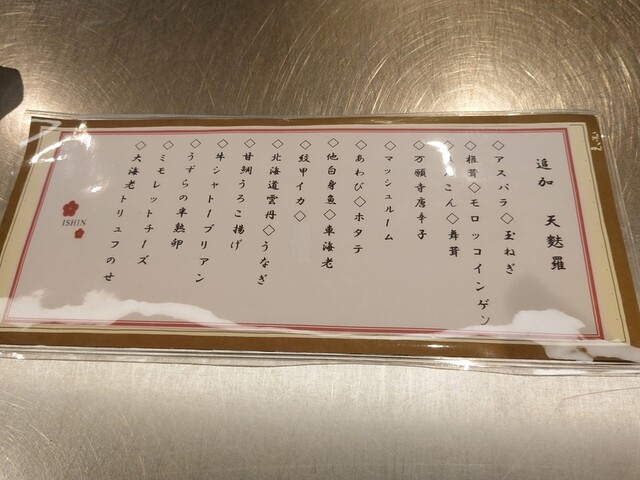 追加 天麩羅
◇アスパラ◇玉ねぎ
◇椎茸◇モロッコインゲン
こん◇舞茸
◇万願寺唐辛子
◇マッシュルーム
◇あわび◇ホタテ
◇他白身魚◇車海老
◇紋甲イカ◇
◇北海道雲丹◇うなぎ
◇甘鯛うろこ揚げ
◇牛シャトーブリアン
◇うずらの半熟卵
◇ミモレットチーズ
◇大海老トリュフのせ
ISHIN